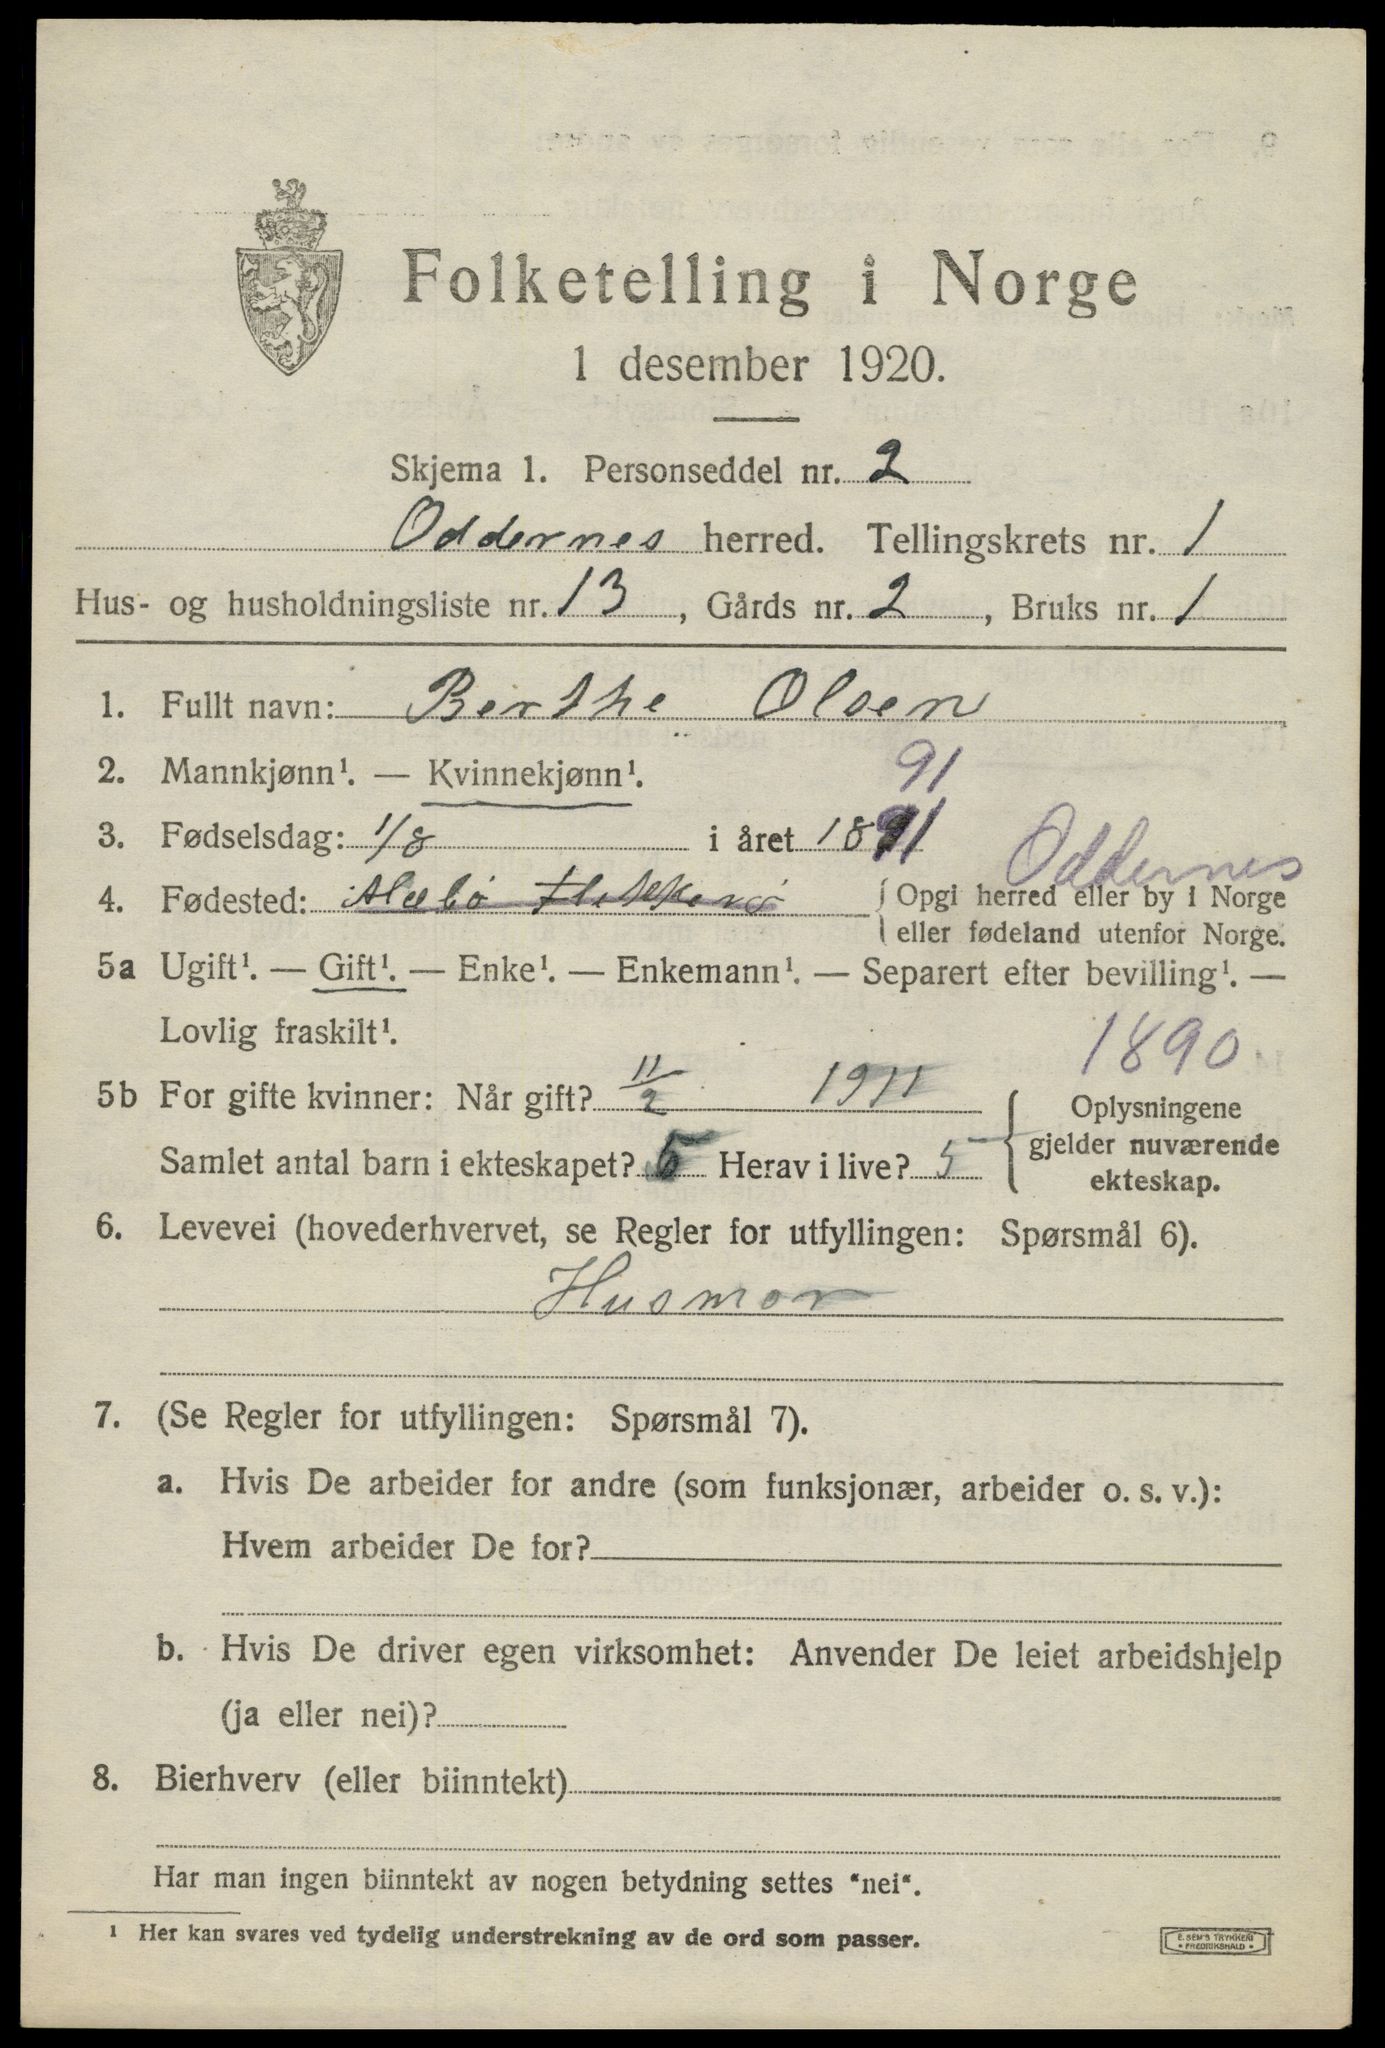 Folketelling i Norge
1 desember 1920.
Skjema 1. Personseddel nr. 2
Oddernes herred. Tellingskrets nr. 1
Hus- og husholdningsliste nr. 13, Gårds nr. 2, Bruks nr. 1
1. Fullt navn: Berthe Olsen
2. Mannkjønn¹. — Kvinnekjønn¹. 91
3. Fødselsdag: 1/8 i året 1891
Oddernes
4. Fødested: Flekkerø { Opgi herred eller by i Norge
eller fødeland utenfor Norge.
5a Ugift¹. — Gift¹. — Enke¹. — Enkemann¹. — Separert efter bevilling¹. —
Lovlig fraskilt¹. 1890
5b For gifte kvinner: Når gift? 11/2 1911 { Oplysningene
Samlet antal barn i ekteskapet? 5 Herav i live? 5 gjelder nuværende
ekteskap.
6. Levevei (hovederhvervet, se Regler for utfyllingen: Spørsmål 6).
Husmor
7. (Se Regler for utfyllingen: Spørsmål 7).
a. Hvis De arbeider for andre (som funksjonær, arbeider o. s. v.):
Hvem arbeider De for?
b. Hvis De driver egen virksomhet: Anvender De leiet arbeidshjelp
(ja eller nei)?
8. Bierhverv (eller biinntekt)
Har man ingen biinntekt av nogen betydning settes "nei".
¹ Her kan svares ved tydelig understrekning av de ord som passer.
E. SEM'S TRYKKERI
• FREDRIKSHALD •